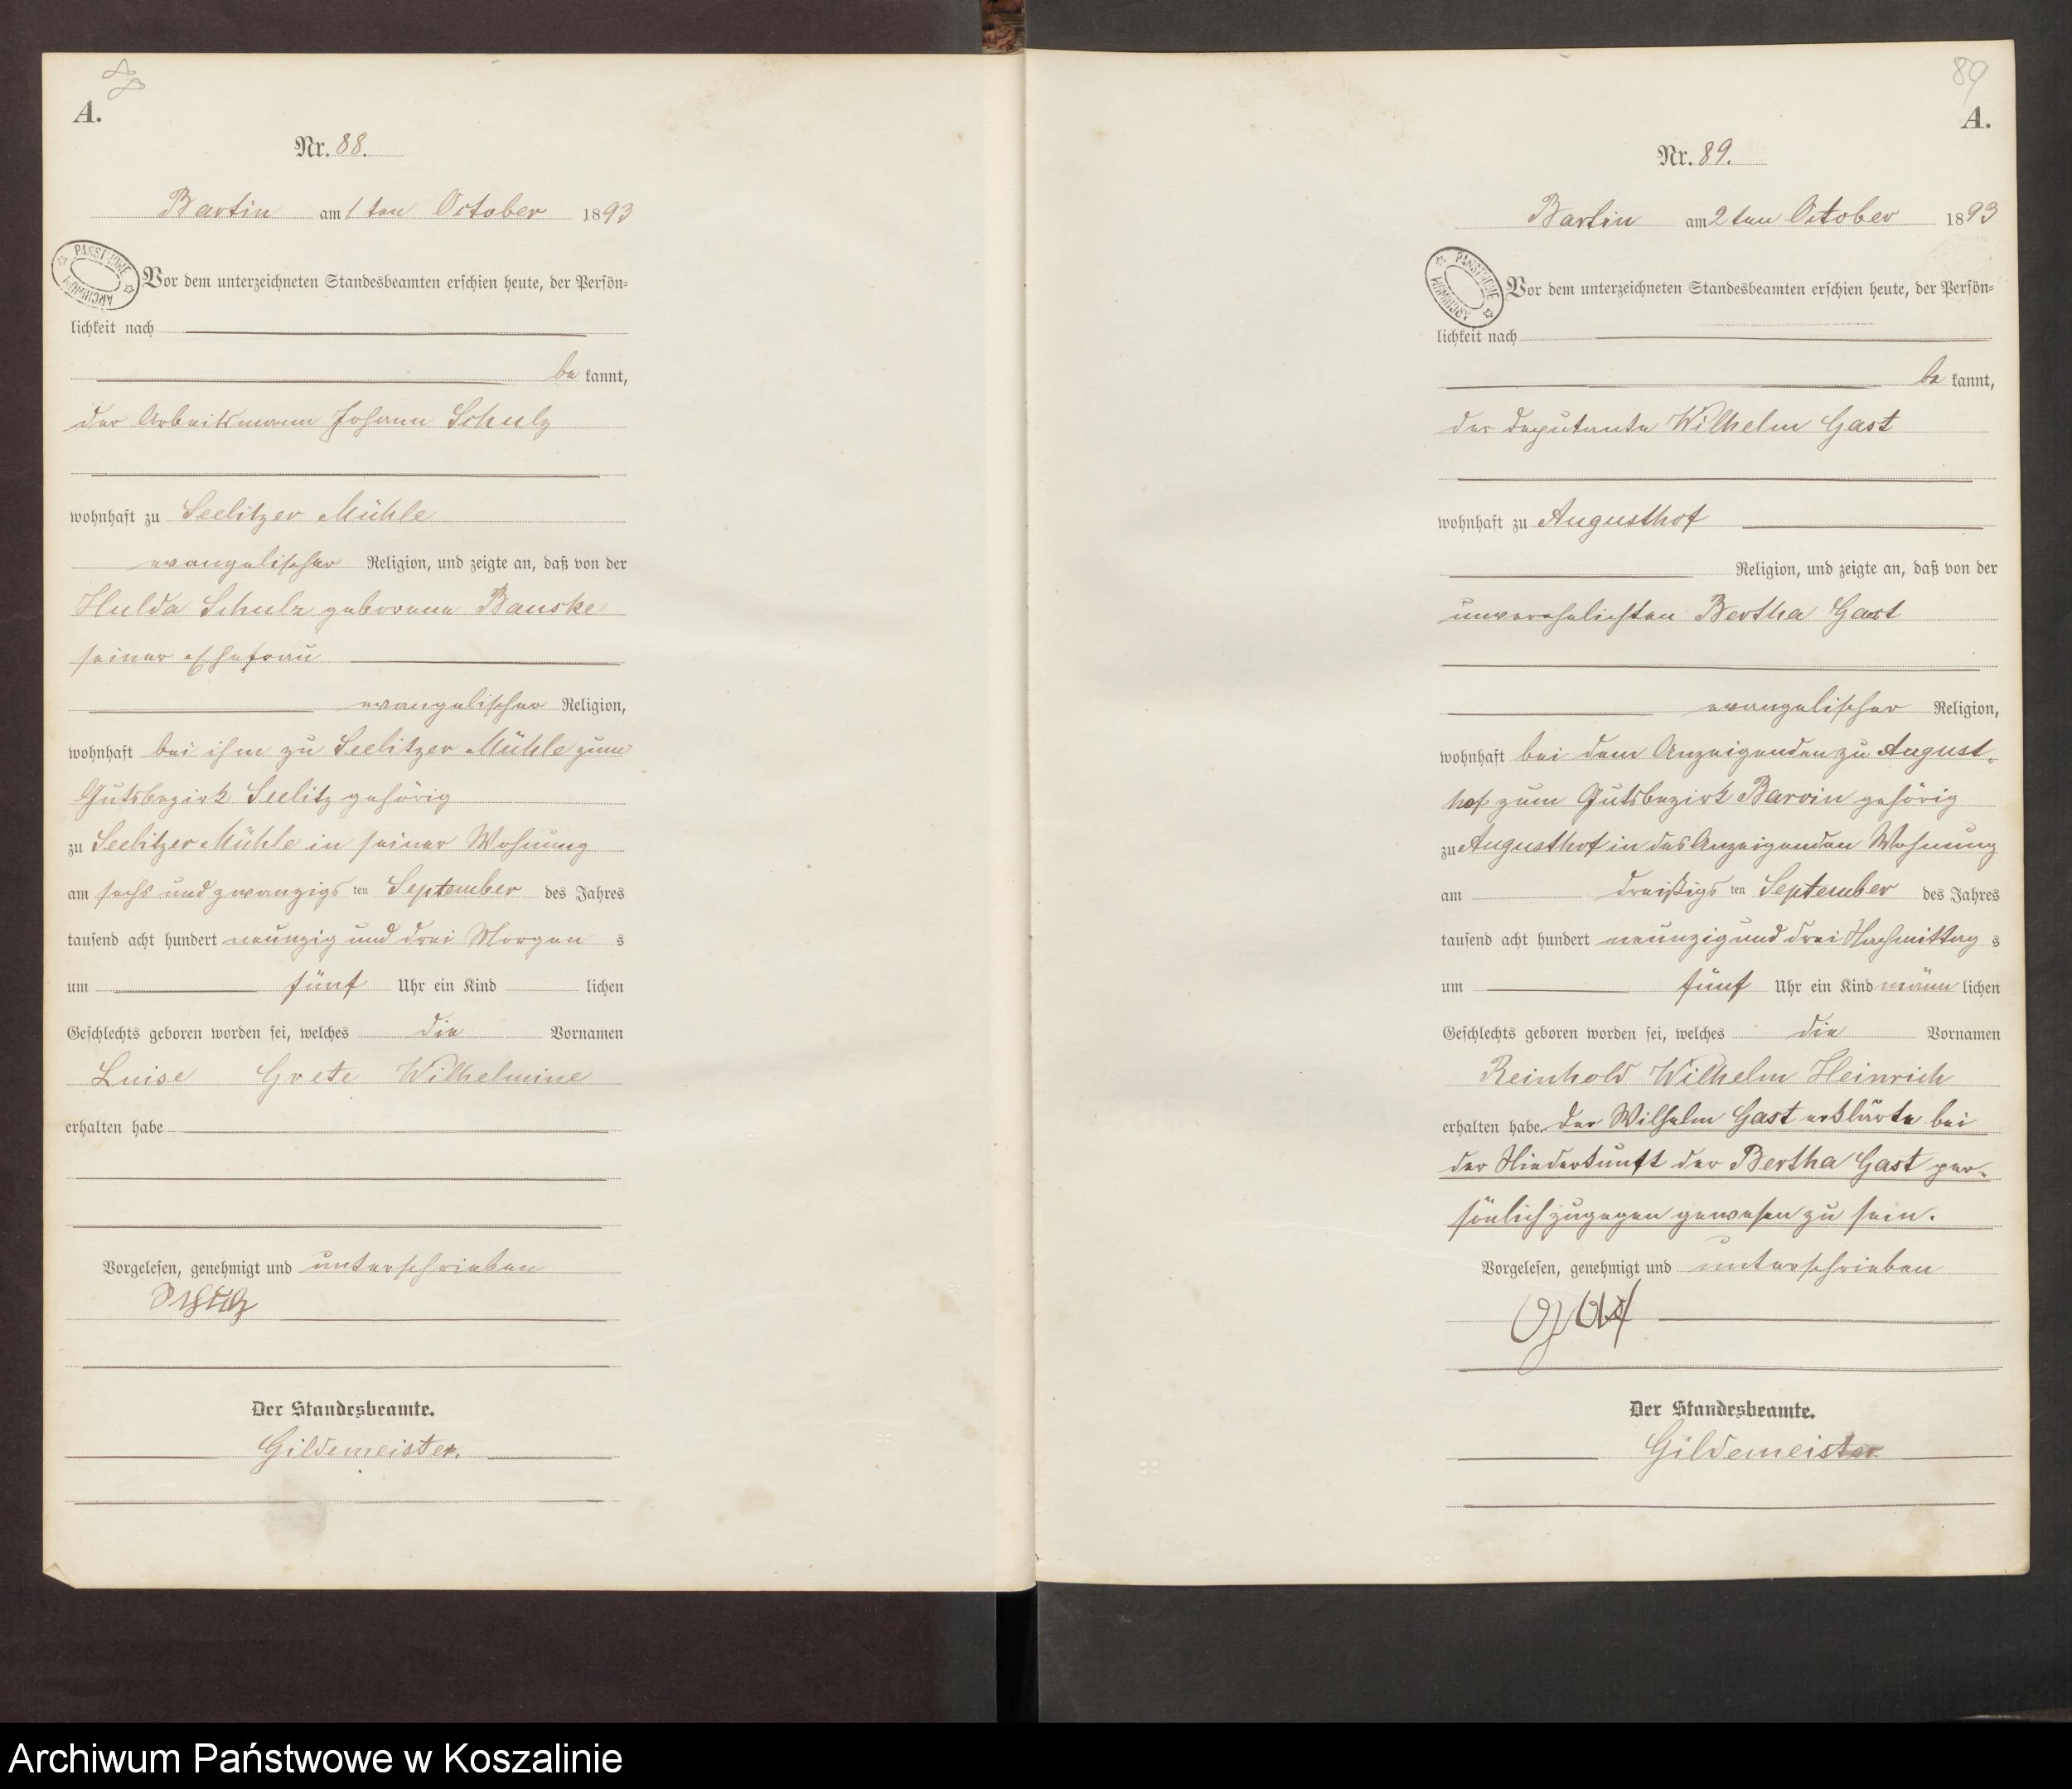 88
A.
Nr. 88.
Bartin am 1 ten October 1893
PAŃSTWOWE ARCHIWUM
Vor dem unterzeichneten Standesbeamten erschien heute, der Persön-
lichkeit nach
be kannt,
der Arbeitsmann Johann Schulz
wohnhaft zu Seelitzer Mühle
evangelischer Religion, und zeigte an, daß von der
Hulda Schulz geborene Banske
seiner Ehefrau
evangelischer Religion,
wohnhaft bei ihm zu Seelitzer Mühle zum
Gutsbezirk Seelitz gehörig
zu Seelitzer Mühle in seiner Wohnung
am sechs und zwanzigs ten September des Jahres
tausend acht hundert neunzig und drei Morgen s
um fünf Uhr ein Kind lichen
Geschlechts geboren worden sei, welches die Vornamen
Luise Grete Wilhelmine
erhalten habe
Vorgelesen, genehmigt und unterschrieben
Schulz
Der Standesbeamte.
Gildemeister.
89
A.
Nr. 89.
Bartin am 2 ten October 1893
PAŃSTWOWE ARCHIWUM
Vor dem unterzeichneten Standesbeamten erschien heute, der Persön-
lichkeit nach
be kannt,
der Deputante Wilhelm Gast
wohnhaft zu Augusthof
Religion, und zeigte an, daß von der
unverehelichten Bertha Gast
evangelischer Religion,
wohnhaft bei dem Anzeigenden zu August-
hof zum Gutsbezirk Barvin gehörig
zu Augusthof in des Anzeigenden Wohnung
am dreißigs ten September des Jahres
tausend acht hundert neunzig und drei Nachmittag s
um fünf Uhr ein Kind männ lichen
Geschlechts geboren worden sei, welches die Vornamen
Reinhold Wilhelm Heinrich
erhalten habe. Der Wilhelm Gast erklärte bei
der Niederkunft der Bertha Gast per-
sönlich zugegen gewesen zu sein.
Vorgelesen, genehmigt und unterschrieben
Gast
Der Standesbeamte.
Gildemeister
Archiwum Państwowe w Koszalinie